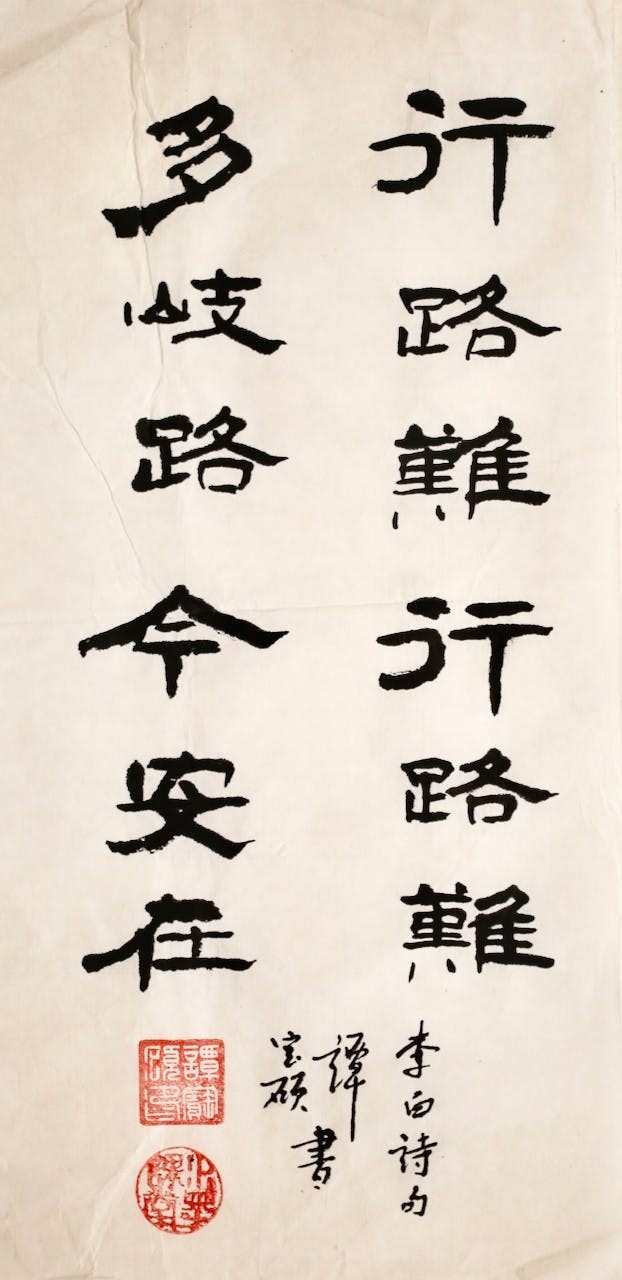 行路難行路難
多岐路今安在
李白詩句
譚宝碩書